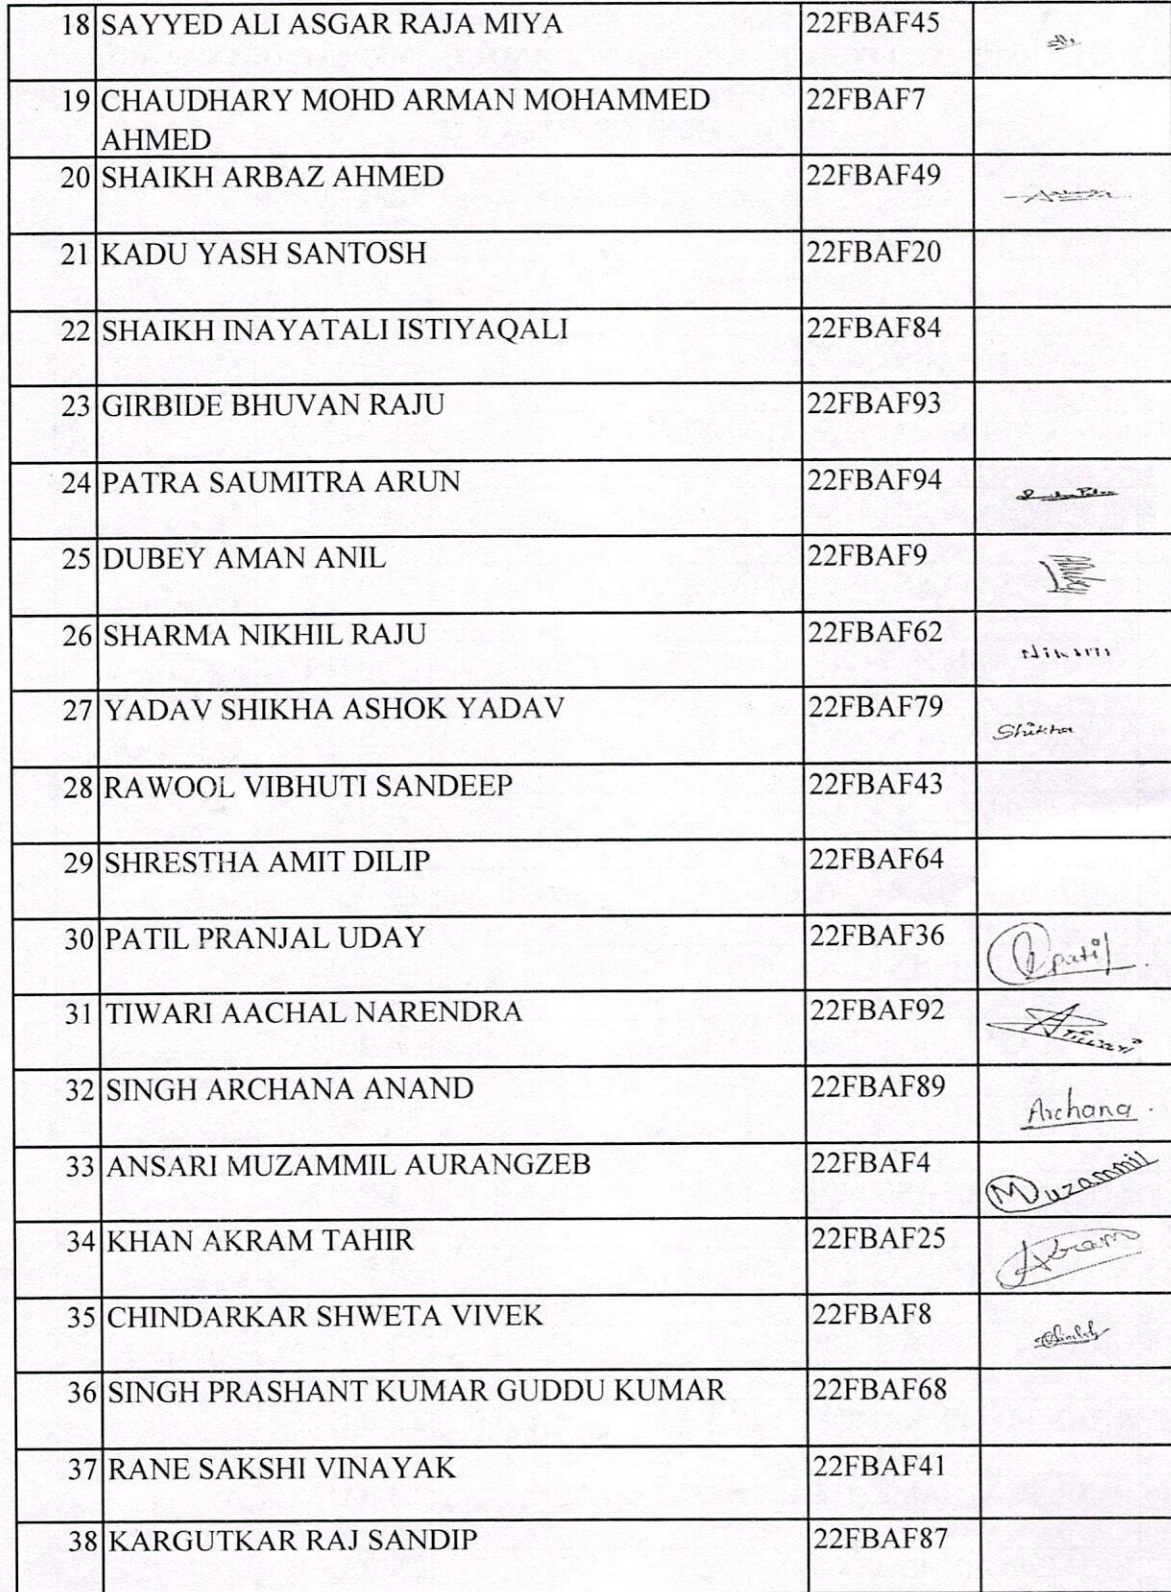 18 SAYYED ALI ASGAR RAJA MIYA 22FBAF45
19 CHAUDHARY MOHD ARMAN MOHAMMED 22FBAF7
AHMED
20 SHAIKH ARBAZ AHMED 22FBAF49
21 KADU YASH SANTOSH 22FBAF20
22 SHAIKH INAYATALI ISTIYAQALI 22FBAF84
23 GIRBIDE BHUVAN RAJU 22FBAF93
24 PATRA SAUMITRA ARUN 22FBAF94
25 DUBEY AMAN ANIL 22FBAF9
26 SHARMA NIKHIL RAJU 22FBAF62
27 YADAV SHIKHA ASHOK YADAV 22FBAF79 Shikha
28 RAWOOL VIBHUTI SANDEEP 22FBAF43
29 SHRESTHA AMIT DILIP 22FBAF64
30 PATIL PRANJAL UDAY 22FBAF36 Patil
31 TIWARI AACHAL NARENDRA 22FBAF92 ATiwari
32 SINGH ARCHANA ANAND 22FBAF89 Archana.
33 ANSARI MUZAMMIL AURANGZEB 22FBAF4 Muzammil
34 KHAN AKRAM TAHIR 22FBAF25 Akram
35 CHINDARKAR SHWETA VIVEK 22FBAF8
36 SINGH PRASHANT KUMAR GUDDU KUMAR 22FBAF68
37 RANE SAKSHI VINAYAK 22FBAF41
38 KARGUTKAR RAJ SANDIP 22FBAF87